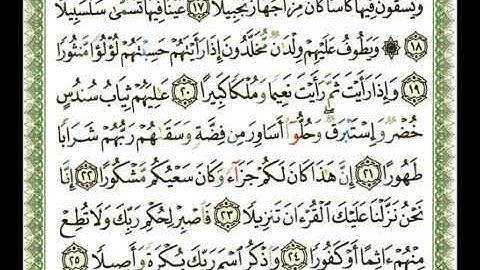 وَيُسْقَوْنَ فِيهَا كَأْسًا كَانَ مِزَاجُهَا زَنجَبِيلًا ١٧ عَيْنًا فِيهَا تُسَمَّىٰ سَلْسَبِيلًا
١٨ ۞ وَيَطُوفُ عَلَيْهِمْ وِلْدَٰنٌ مُّخَلَّدُونَ إِذَا رَأَيْتَهُمْ حَسِبْتَهُمْ لُؤْلُؤًا مَّنثُورًا
١٩ وَإِذَا رَأَيْتَ ثَمَّ رَأَيْتَ نَعِيمًا وَمُلْكًا كَبِيرًا ٢٠ عَٰلِيَهُمْ ثِيَابُ سُندُسٍ
خُضْرٌ وَإِسْتَبْرَقٌ وَحُلُّوٓا۟ أَسَاوِرَ مِن فِضَّةٍ وَسَقَىٰهُمْ رَبُّهُمْ شَرَابًا
طَهُورًا ٢١ إِنَّ هَٰذَا كَانَ لَكُمْ جَزَآءً وَكَانَ سَعْيُكُم مَّشْكُورًا ٢٢ إِنَّا
نَحْنُ نَزَّلْنَا عَلَيْكَ الْقُرْءَانَ تَنزِيلًا ٢٣ فَاصْبِرْ لِحُكْمِ رَبِّكَ وَلَا تُطِعْ
مِنْهُمْ ءَاثِمًا أَوْ كَفُورًا ٢٤ وَاذْكُرِ اسْمَ رَبِّكَ بُكْرَةً وَأَصِيلًا ٢٥